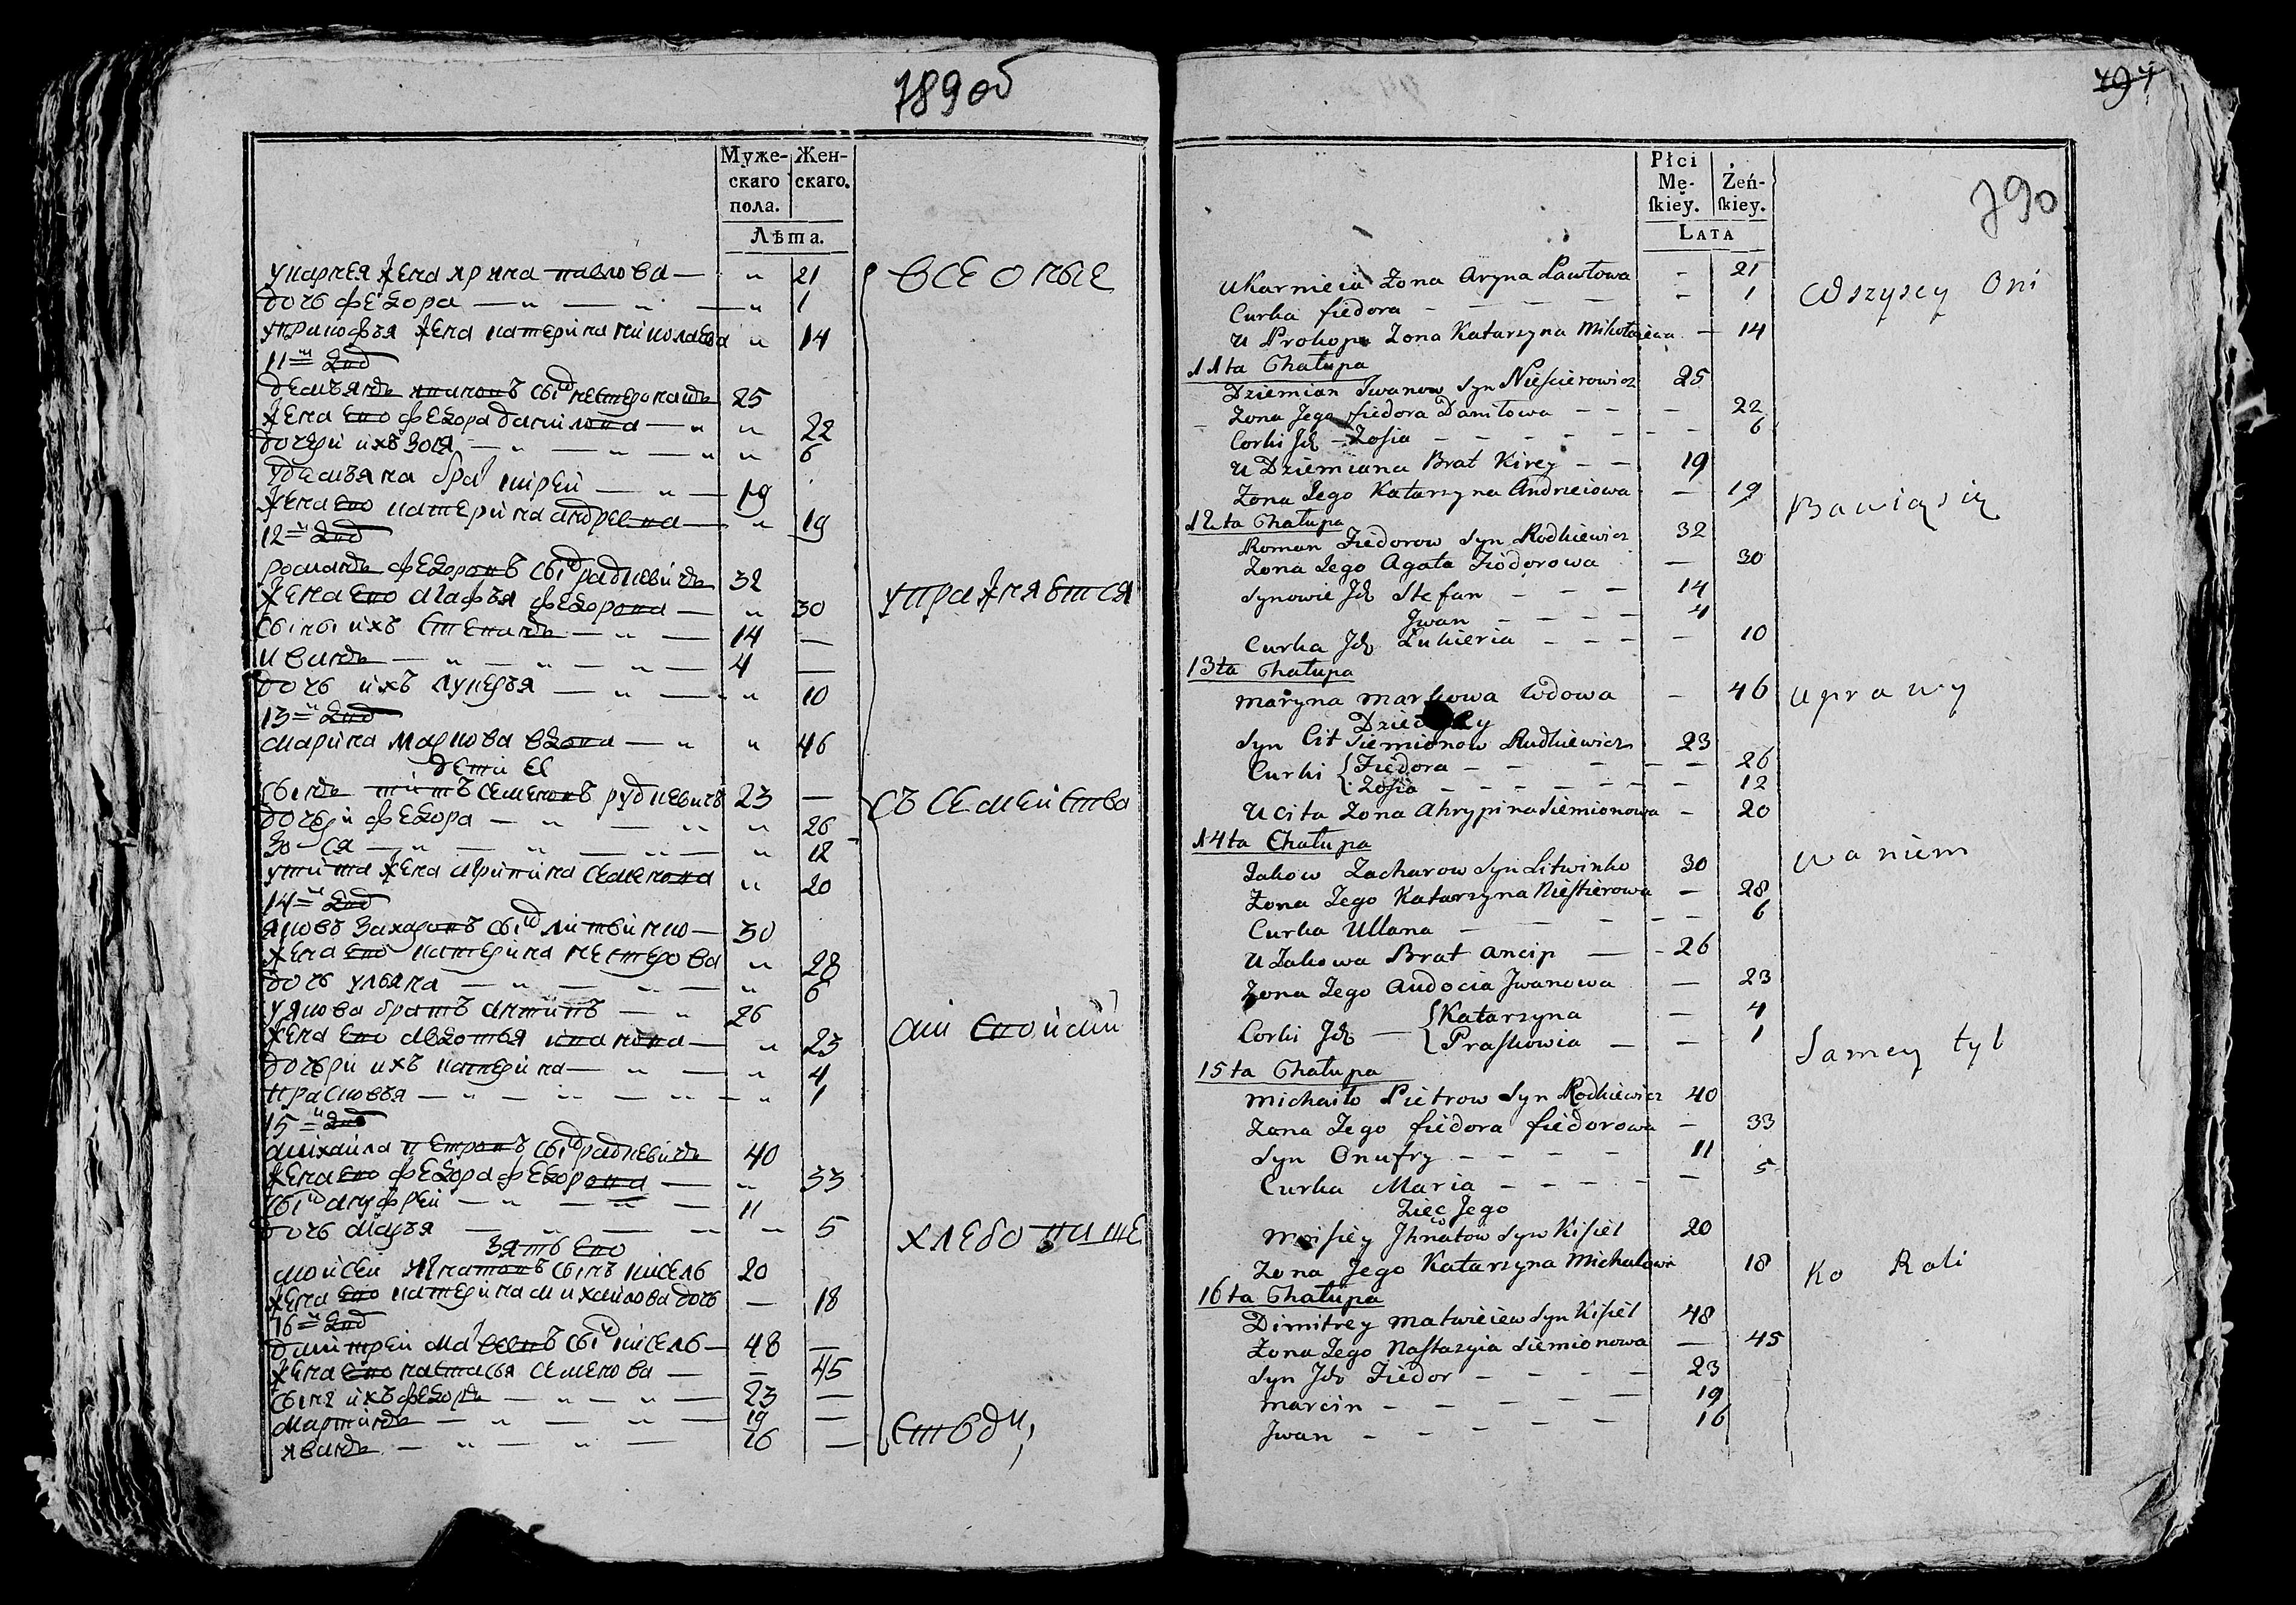 789об
Муже-
скаго
пола.
Жен-
скаго.
Лѣта.
укарнея жена ярина павлова — „ 21
дочь федора — „ — „ — „ 1
упракофья жена катерина николаева „ 14
11й двор
демьянъ ивановъ сынъ нестеровичь 25
жена его федора данилова — „ „ 22
дочери ихъ зося — „ — „ — „ „ 6
удемьяна брат кирей — „ — 19
жена его катерина андреева — „ 19
12й двор
романъ федоровъ сынъ радкевичь 32
жена его агафья федорова — „ 30
сыны ихъ степанъ — „ — 14 —
иванъ — „ — „ — „ — 4 —
дочь ихъ лукерья — „ — „ 10
13й двор
марина маркова вдова — „ „ 46
дети ее
сынъ титъ семеновъ рудкевичъ 23 —
дочери федора — „ — „ „ 26
зося — „ — „ — „ — „ 12
утита жена агрипина семенова „ 20
14й двор
яковъ захаровъ сынъ литвинко — 30
жена его катерина нестерова „ 28
дочь ульяна — „ — „ — „ 6
уякова братъ антипъ — „ 26
жена его авдотья иванова — „ 23
дочери ихъ катерина — „ — „ 4
прасковья — „ — „ — „ — „ 1
15й двор
михаила петровъ сынъ радкевичь 40
жена его федора федорова — „ 33
сынъ ануфрей — „ — „ — 11
дочь марья — „ — „ — „ 5
зять его
мойсей игнатовъ сынъ кисель 20
жена его катерина михайлова дочь — 18
16й двор
дмитрей матвеевъ сынъ кисель — 48 —
жена его настасья семенова — — 45
сынъ ихъ федоръ — „ — „ — 23 —
мартинъ — „ — „ — 19 —
иванъ — „ — „ — 16 —
все оные
упражняются
съ семейства
ми своими
хлебопаше
ством,
790
Płci
Mę-
skiey.
Żeń-
skiey.
LATA
U Karnieia Zona Aryna Pawłowa - 21
Curka fiedora - — — — - 1
U Prokopa Zona Katarzyna Mikołaiewa — 14
11ta Chałupa
Dziemian Jwanow Syn Nieścierowicz 25
Zona Jego fiedora Daniłowa - - - 22
Corki Jch - Zosia - - - - - - - 6
U Dziemiana Brat Kirey - - 19
Zona Jego Katarzyna Andrieiowa — 19
12ta Chałupa
Roman Fiedorow Syn Rodkiewicz 32
Zona Jego Agata Fiodorowa — 30
Synowie Jch Stefan - - - 14
Jwan - - - - 4
Curka Jch Łukieria - - - - 10
13ta Chałupa
Maryna Markowa Wdowa - 46
Syn Cit Siemionow Rudkiewicz 23
Curki { Fiedora - - - - - 26
Zosia - - - - - - - 12
U Cita Zona Ahrypina Siemionowa - 20
14ta Chałupa
Jakow Zacharow Syn Litwinko 30
Zona Jego Katarzyna Niestierowa — 28
Curka Ullana - — - - - 6
U Jakowa Brat Ancip — - 26
Zona Jego Audocia Jwanowa — 23
Corki Jch — { Katarzyna — 4
Praskowia — — 1
15ta Chałupa
Michaiło Pietrow Syn Rodkiewicz 40
Zona Jego fiedora fiedorowa — 33
Syn Onufry - - - - 11
Curka Maria - - - - - 5
Zięć Jego
Moisiey Jhnatow Syn Kisiel 20
Zona Jego Katarzyna Michałowa 18
16ta Chałupa
Dimitrey Matwieiew Syn Kisiel 48
Zona Jego Nastazyia Siemionowa — 45
Syn Jch Fiedor - - - - 23
Marcin - - - - - 19
Jwan - - - - - 16
Wszyscy Oni
Bawią się
uprawy
waniem
Samey tyl
Ko Roli